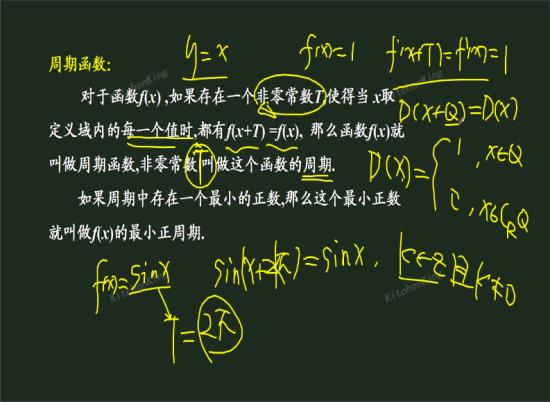 y=x f(x)=1 f(x+T)=f(x)=1
周期函数:
对于函数f(x),如果存在一个非零常数T,使得当 x取
D(x+Q)=D(x)
定义域内的每一个值时,都有f(x+T) =f(x), 那么函数f(x)就
叫做周期函数,非零常数T叫做这个函数的周期.
D(x)={1, x∈Q
如果周期中存在一个最小的正数,那么这个最小正数
, x∈C_RQ
就叫做f(x)的最小正周期.
f(x)=sinx sin(x+2kπ)=sinx, k∈Z且k≠0
T=2π
KitchenKing
KitchenKing
KitchenKing
KitchenKing